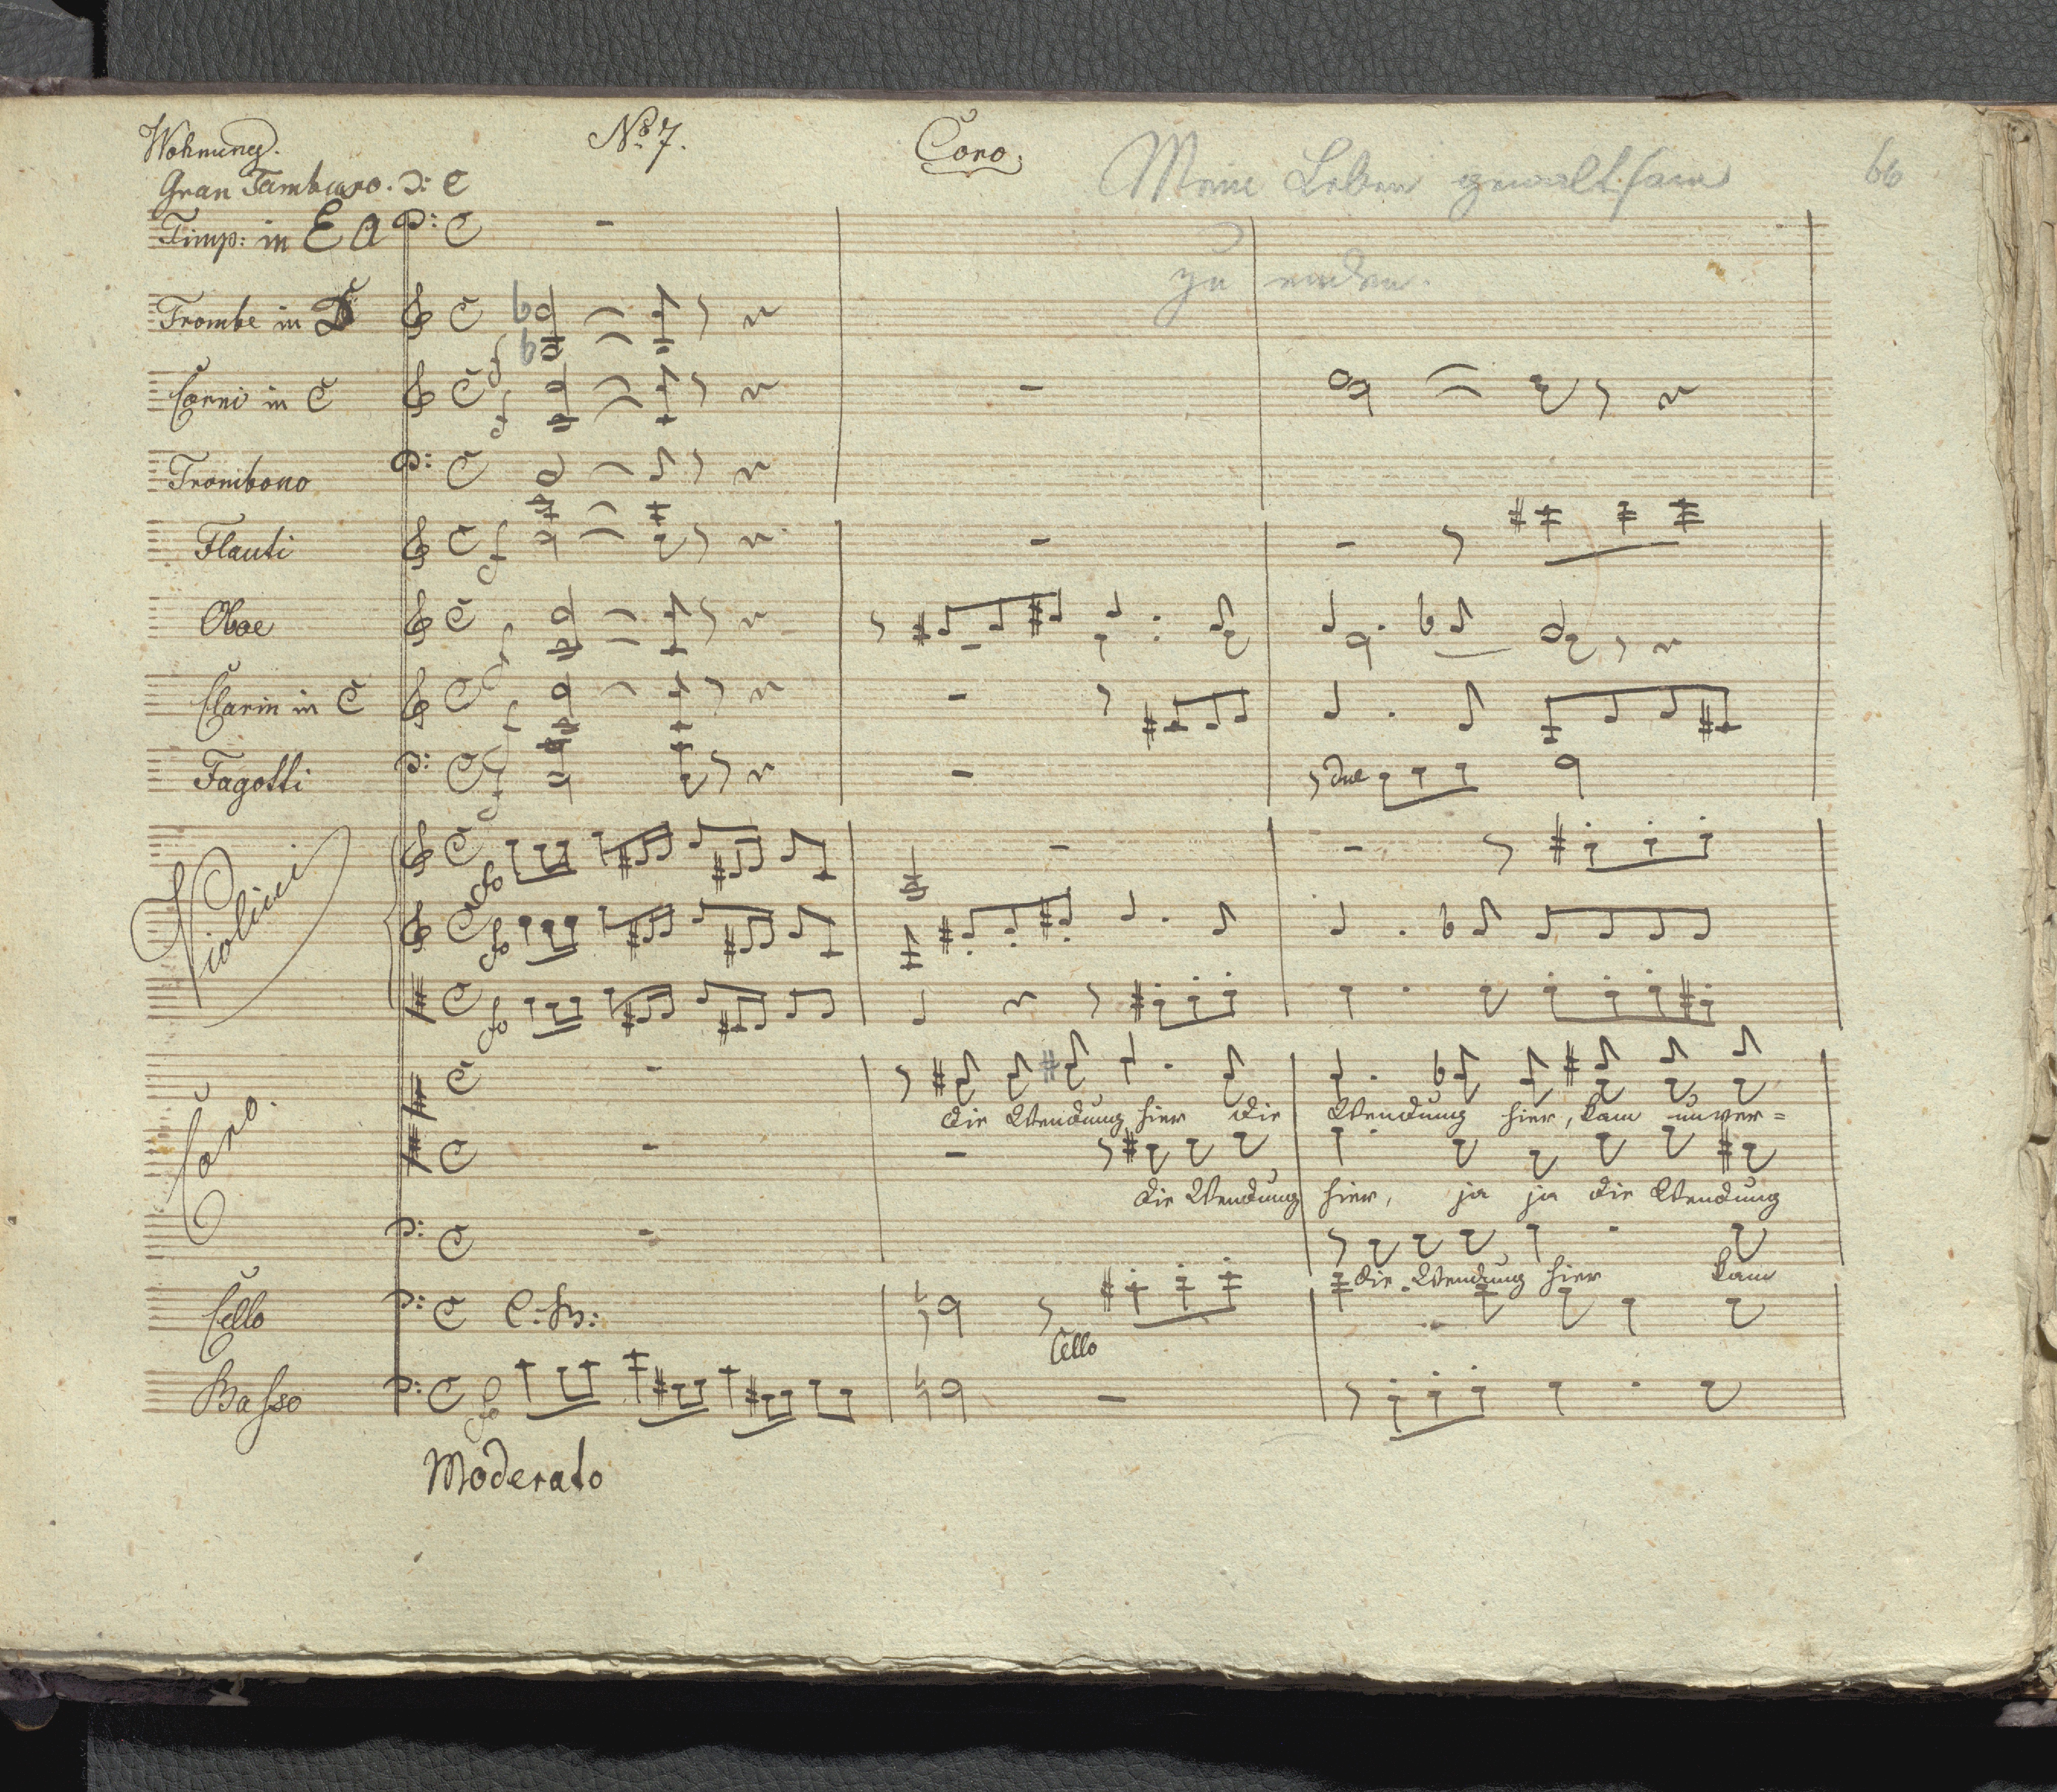 Wohnung. Nº 7. Coro.
Meine Leben gewaltsam 66
zu enden.
Gran Tamburo. C
Timp: in E A
Trombe in D
Corni in C
Trombono
Flauti
Oboe
Clarin in C
Fagotti
due
Violini
Coro.
die Wendung hier die Wendung hier, kam unver=
die Wendung hier, ja ja die Wendung
die Wendung hier kam
Cello C. B:
Cello
Basso
Moderato